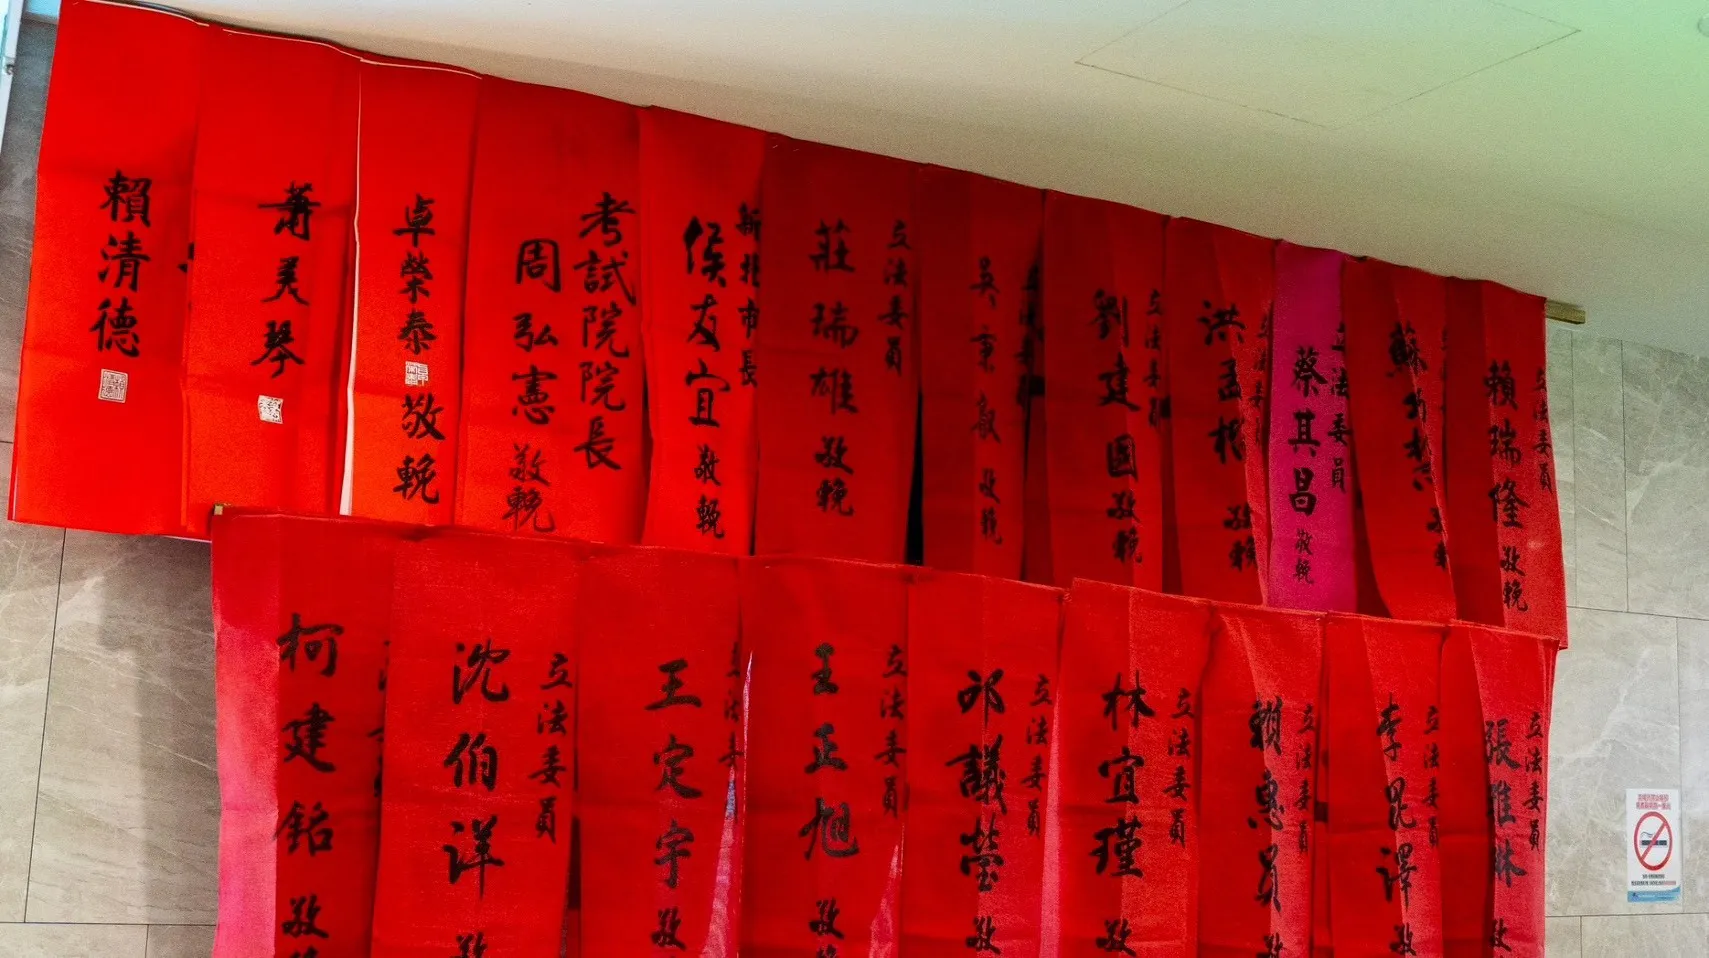 賴清德
蕭美琴
卓榮泰敬輓
考試院院長
周弘憲敬輓
新北市長
侯友宜敬輓
立法委員
莊瑞雄敬輓
吳秉叡敬輓
立法委員
劉建國敬輓
洪孟楷敬輓
立法委員
蔡其昌敬輓
立法委員
賴瑞隆敬輓
柯建銘敬
立法委員
沈伯洋敬
立法委
王定宇敬
立法委員
王正旭敬
立法委員
邱議瑩敬
立法委員
林宜瑾敬
立法委員
賴惠員敬
立法委員
李昆澤敬
立法委員
張雅琳敬